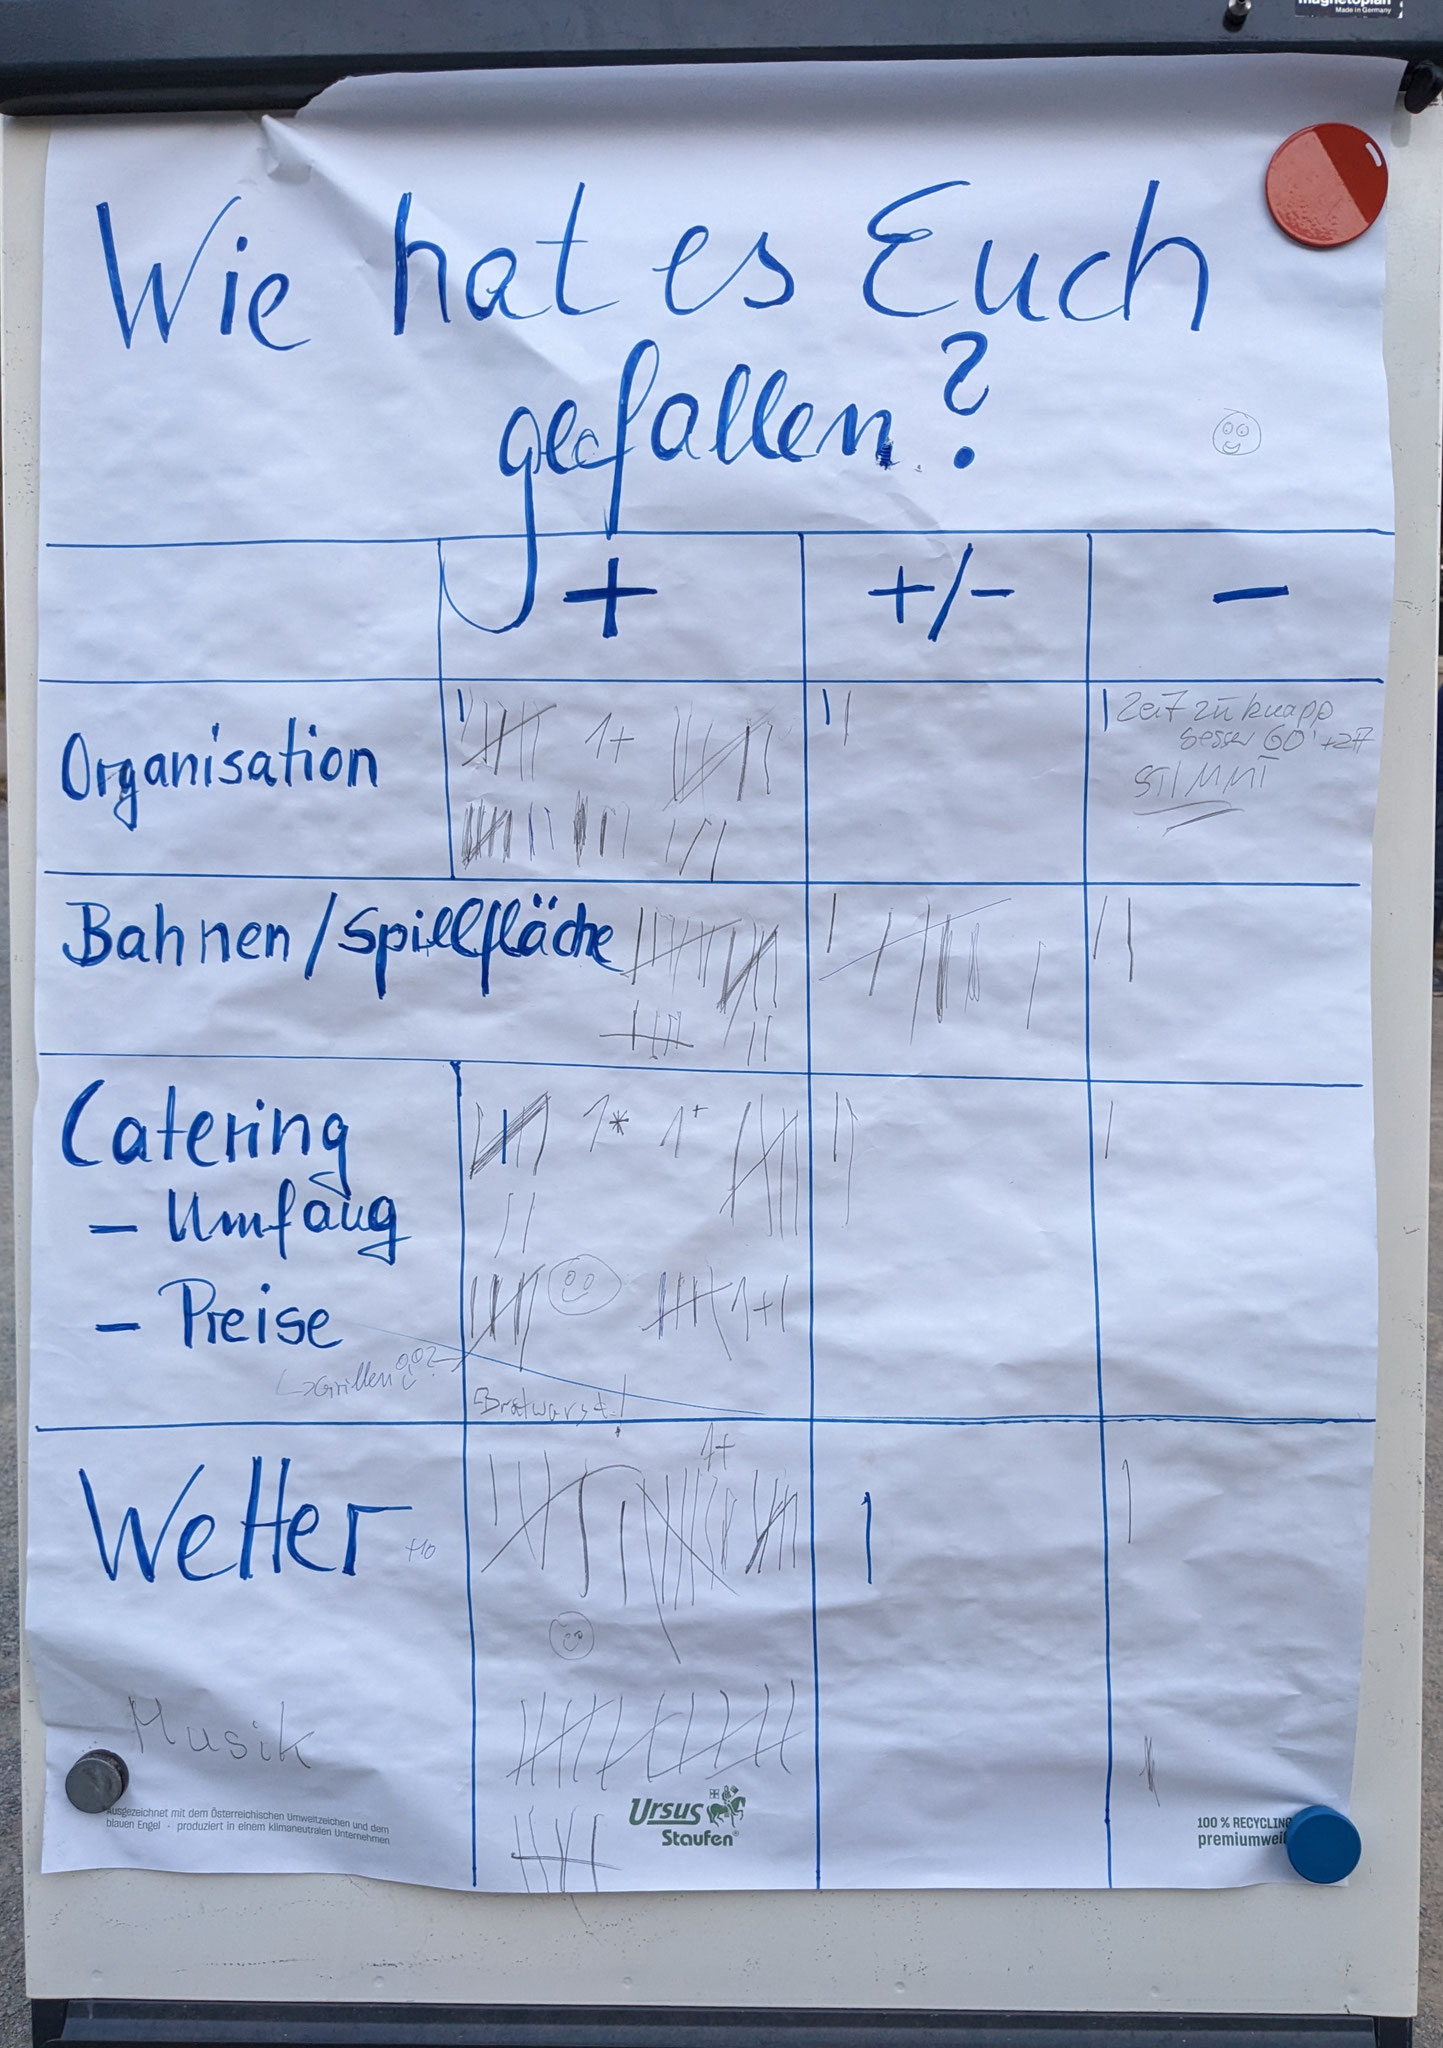 magnetoplan
Made in Germany
Wie hat es Euch
gefallen?
+ +/- -
Organisation 1+ Zeit zu knapp
besser 60' +
STIMMT
Bahnen/Spielfläche
Catering 1* 1+
- Umfang
- Preise 1+
Grillen ?
Bratwurst!
1+
Wetter
Musik
Ausgezeichnet mit dem Österreichischen Umweltzeichen und dem
blauen Engel · produziert in einem klimaneutralen Unternehmen
Ursus
Staufen®
100 % RECYCLING
premiumwei